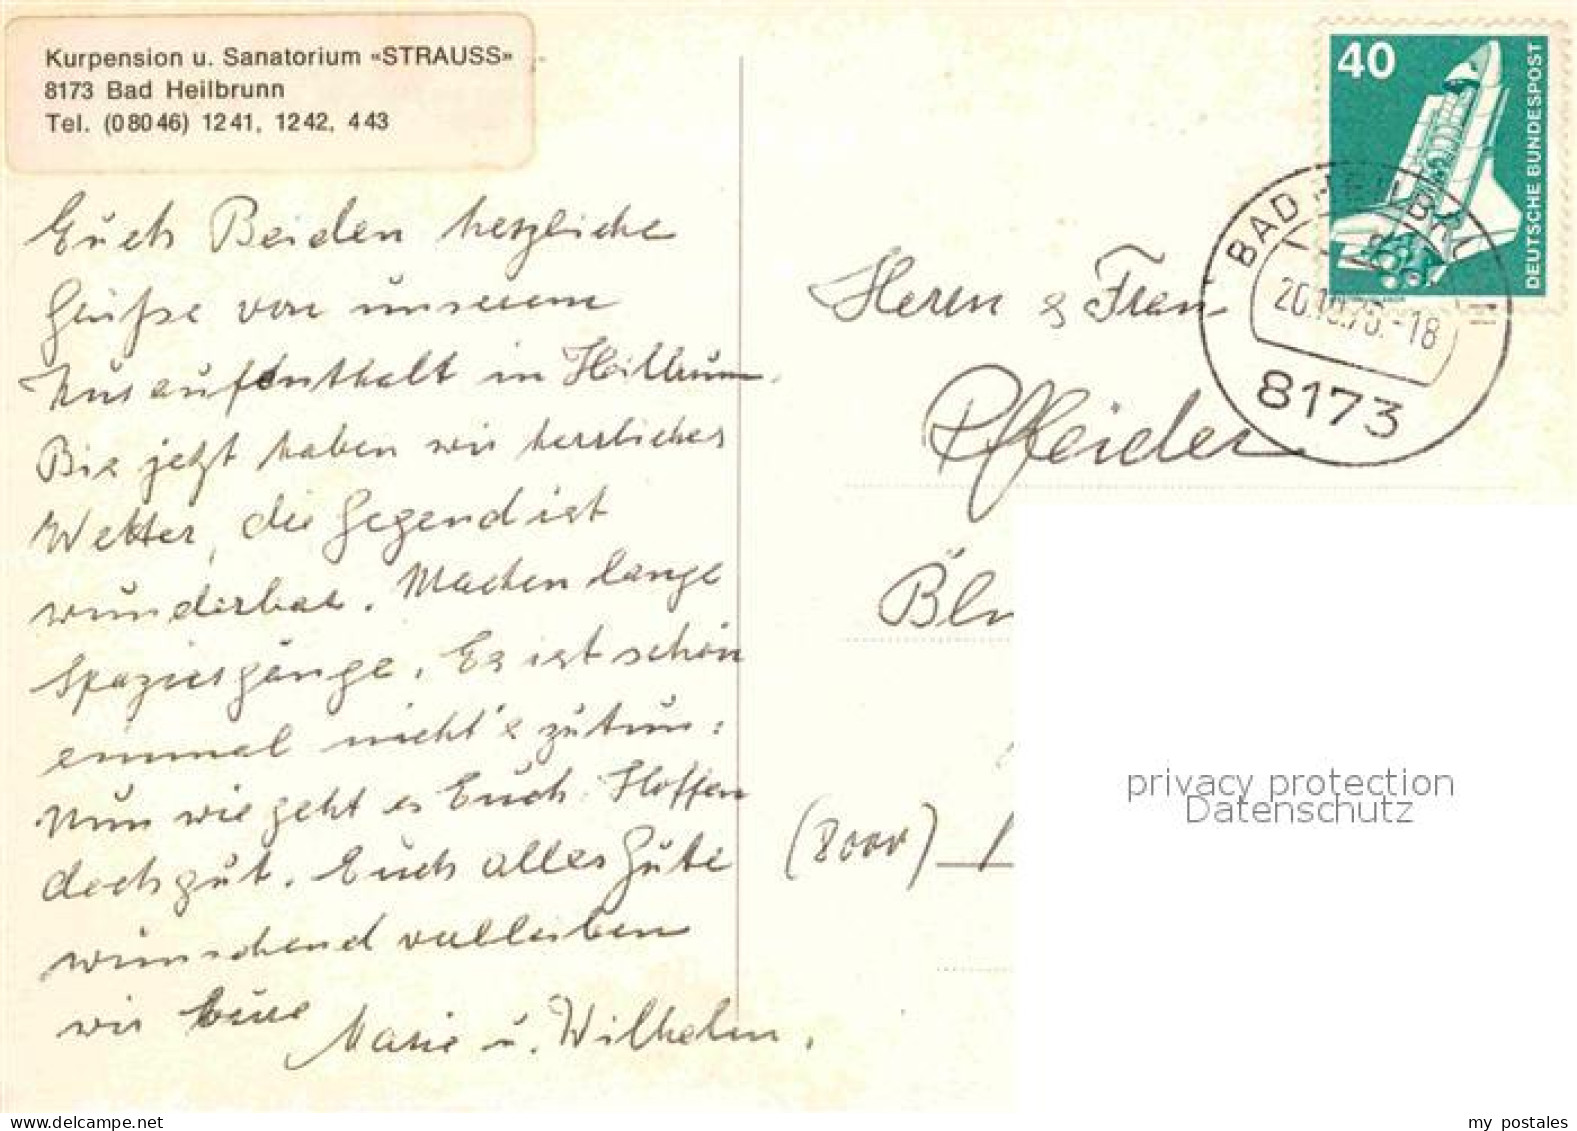 Kurpension u. Sanatorium «STRAUSS»
8173 Bad Heilbrunn
Tel. (08046) 1241, 1242, 443
Euch Beiden herzliche
Grüße von unserem
Kuraufenthalt in Heilbrunn.
Bis jetzt haben wir herrliches
Wetter, die Gegend ist
wunderbar. Machen lange
Spaziergänge. Es ist schön
einmal nicht's zutun.
Nun wie geht es Euch. Hoffen
doch gut. Euch alles Gute
wünschend verbleiben
wir Eure Marie u. Wilhelm.
40
DEUTSCHE BUNDESPOST
BAD HEILBRUNN
-18
8173
Herrn & Frau
Pfleider
(8000)
privacy protection
Datenschutz
my postales